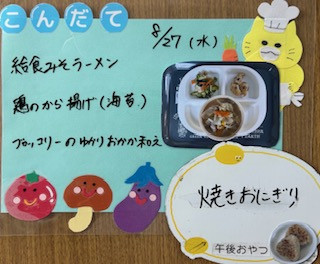 こんだて
8/27(水)
給食みそラーメン
鶏のから揚げ(海苔)
ブロッコリーのゆかりおかか和え
焼きおにぎり
午後おやつ